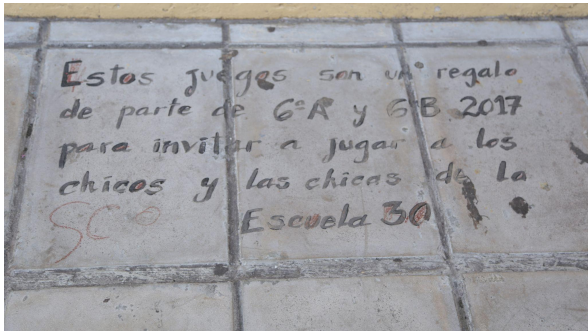 Estos juegos son un regalo
de parte de 6ºA y 6ºB 2017
para invitar a jugar a los
chicos y las chicas de la
Escuela 30